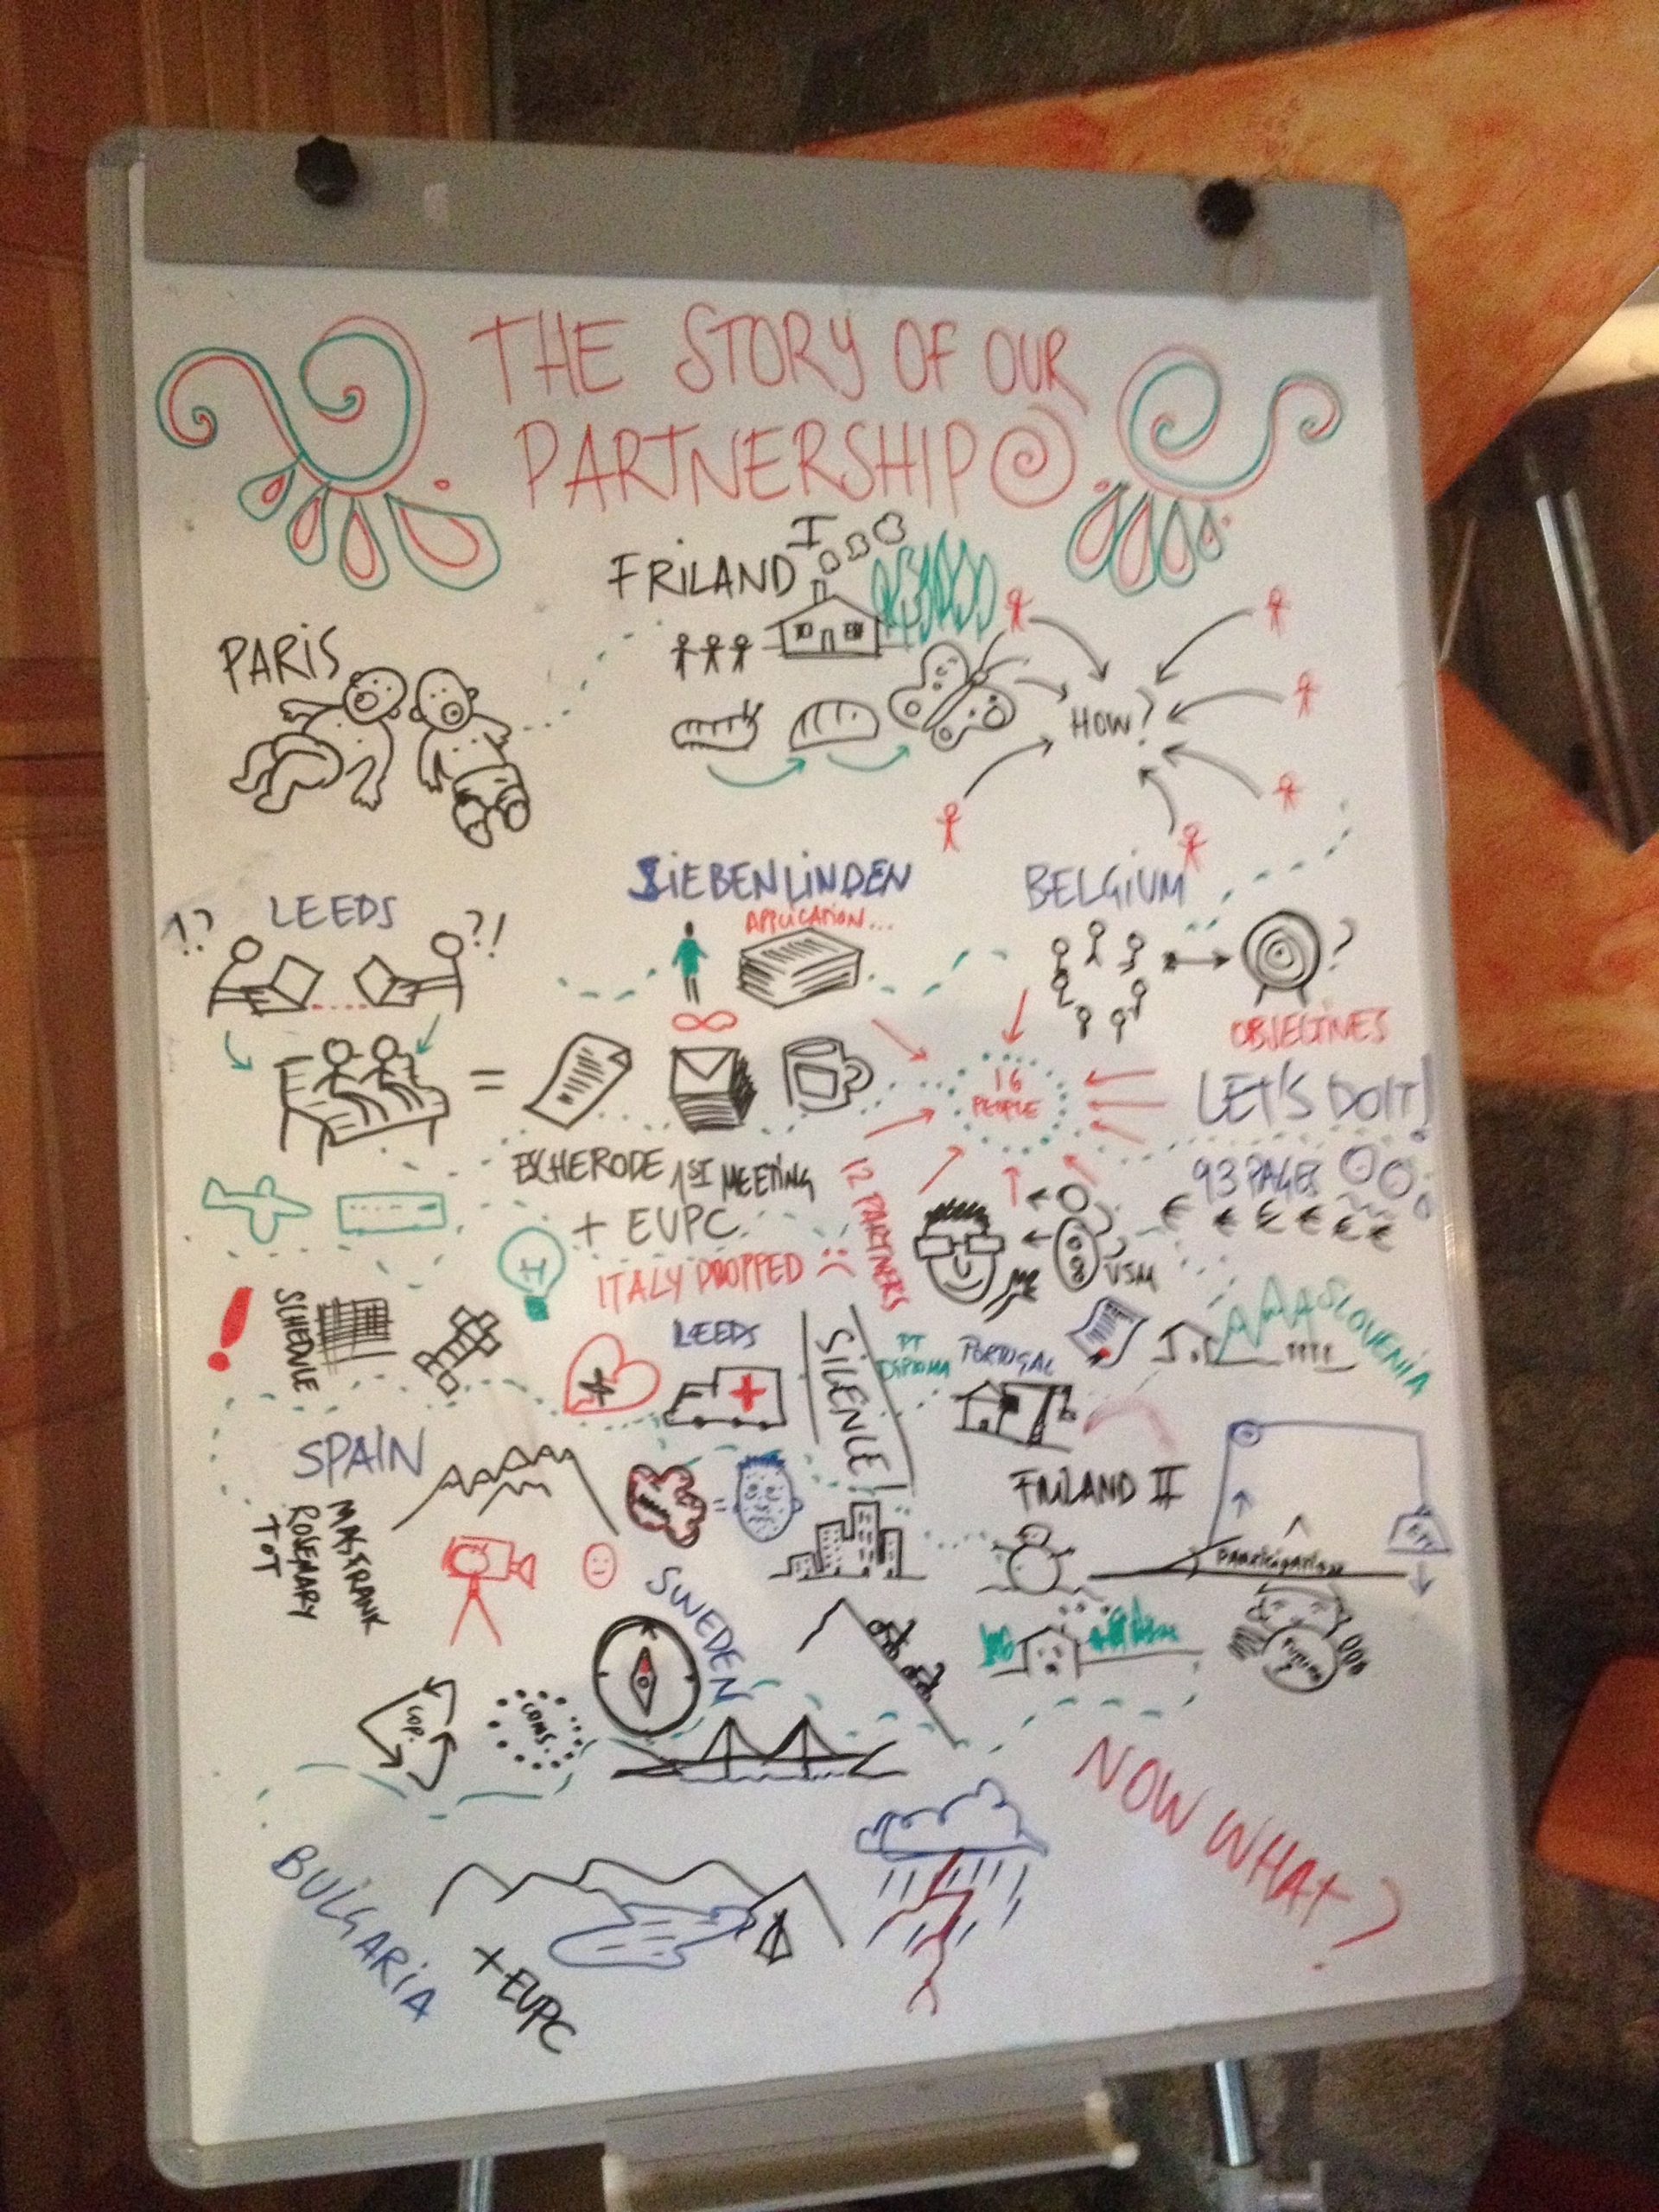 THE STORY OF OUR
PARTNERSHIP
FRILAND I
PARIS
HOW?
LEEDS
!?
?!
SIEBENLINDEN
APPLICATION...
BELGIUM
?
OBJECTIVES
=
16
PEOPLE
LET'S DO IT!
ESCHERODE 1ST MEETING
+ EUPC
93 PAGES
€ € € € € €
12 PARTNERS
VSM
ITALY DROPPED :(
!
SCHEDULE
LEEDS
SILENCE
PT
DIPLOMA
PORTUGAL
SLOVENIA
SPAIN
MR. FRANK
ROSEMARY
TOT
=
FRILAND II
PARTICIPATION
SWEDEN
COP.
COMS.
NOW WHAT?
BULGARIA
+ EUPC